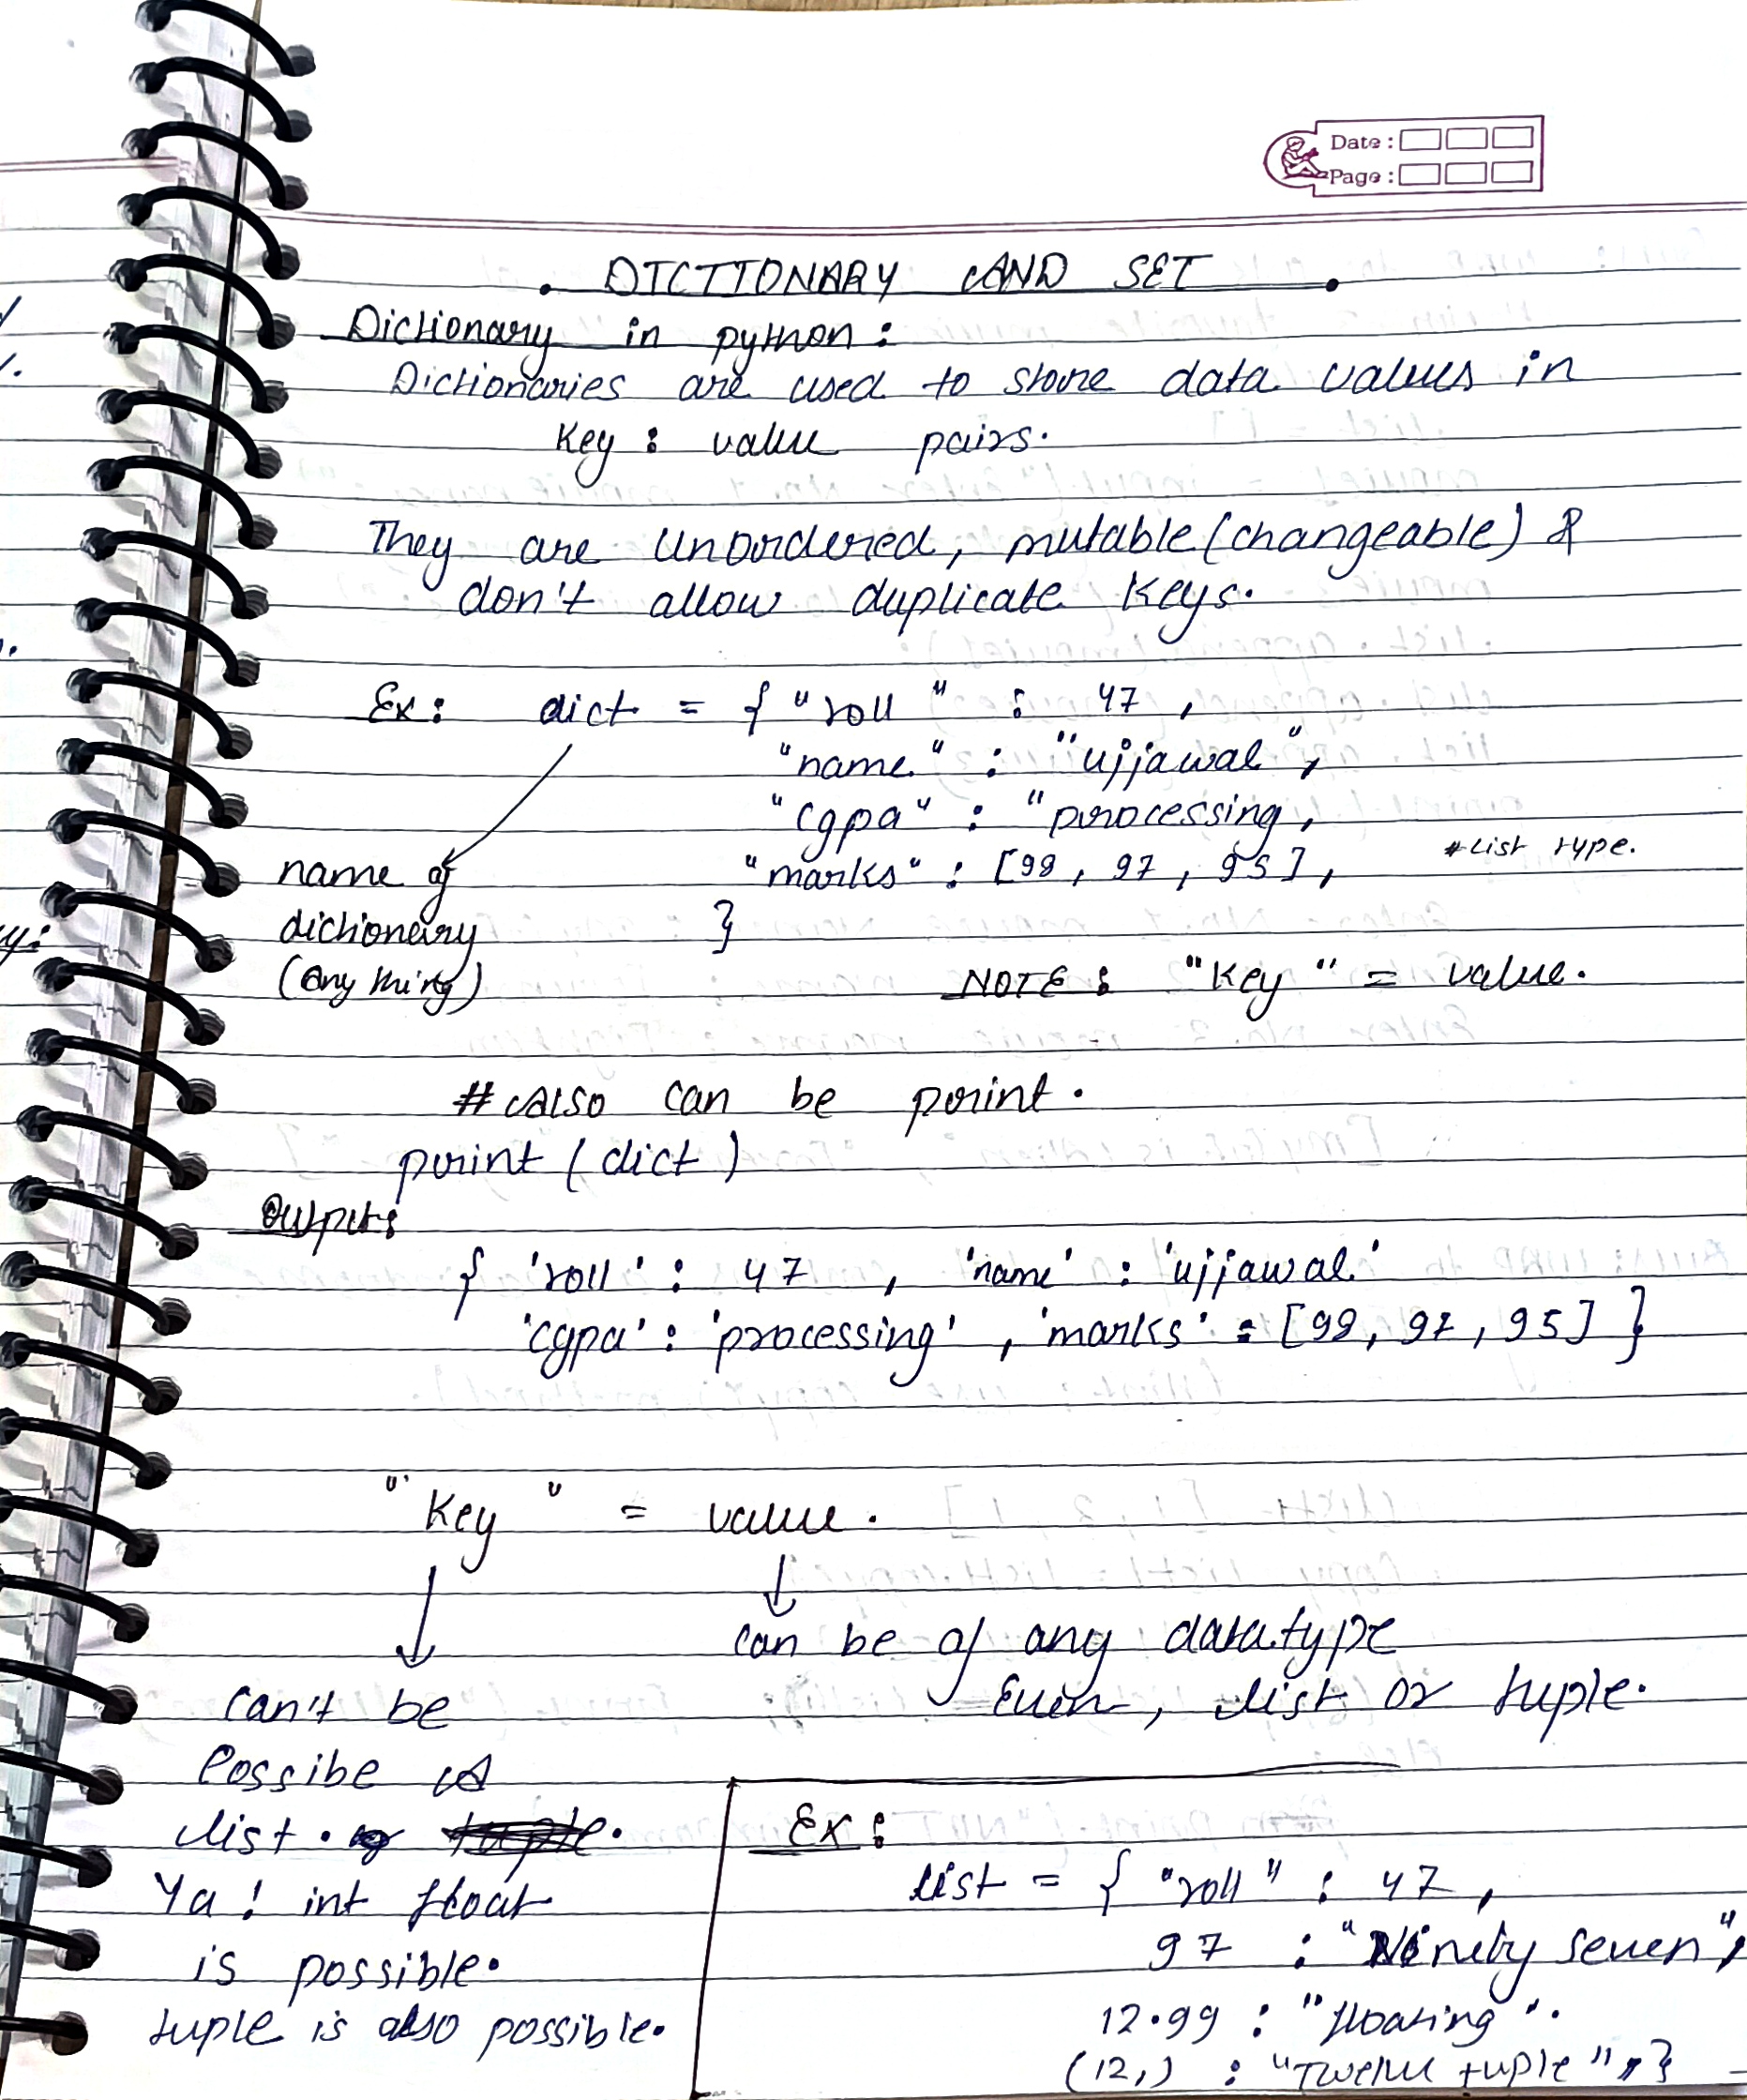 Date :
Page :
DICTIONARY AND SET
Dictionary in python :
Dictionaries are used to store data values in
Key : value pairs.
They are unordered, mutable (changeable) &
don't allow duplicate keys.
Ex : dict = { "roll" : 47 ,
"name" : "ujjawal",
"cgpa" : "processing,
"marks" : [98, 97, 95], # List type.
}
name of
dictionary
(Any thing)
NOTE : "Key" = value.
# Also can be print.
print (dict)
Output :
{ 'roll' : 47 , 'name' : 'ujjawal'
'cgpa' : 'processing' , 'marks' : [98, 97, 95] }
"Key" = value.
can be of any datatype
Even, list or tuple.
can't be
Possibe as
list.
Ya ! int float
is possible.
tuple is also possible.
Ex :
list = { "roll" : 47 ,
97 : "Ninety seven",
12.99 : "floating".
(12,) : "Twelve tuple", }